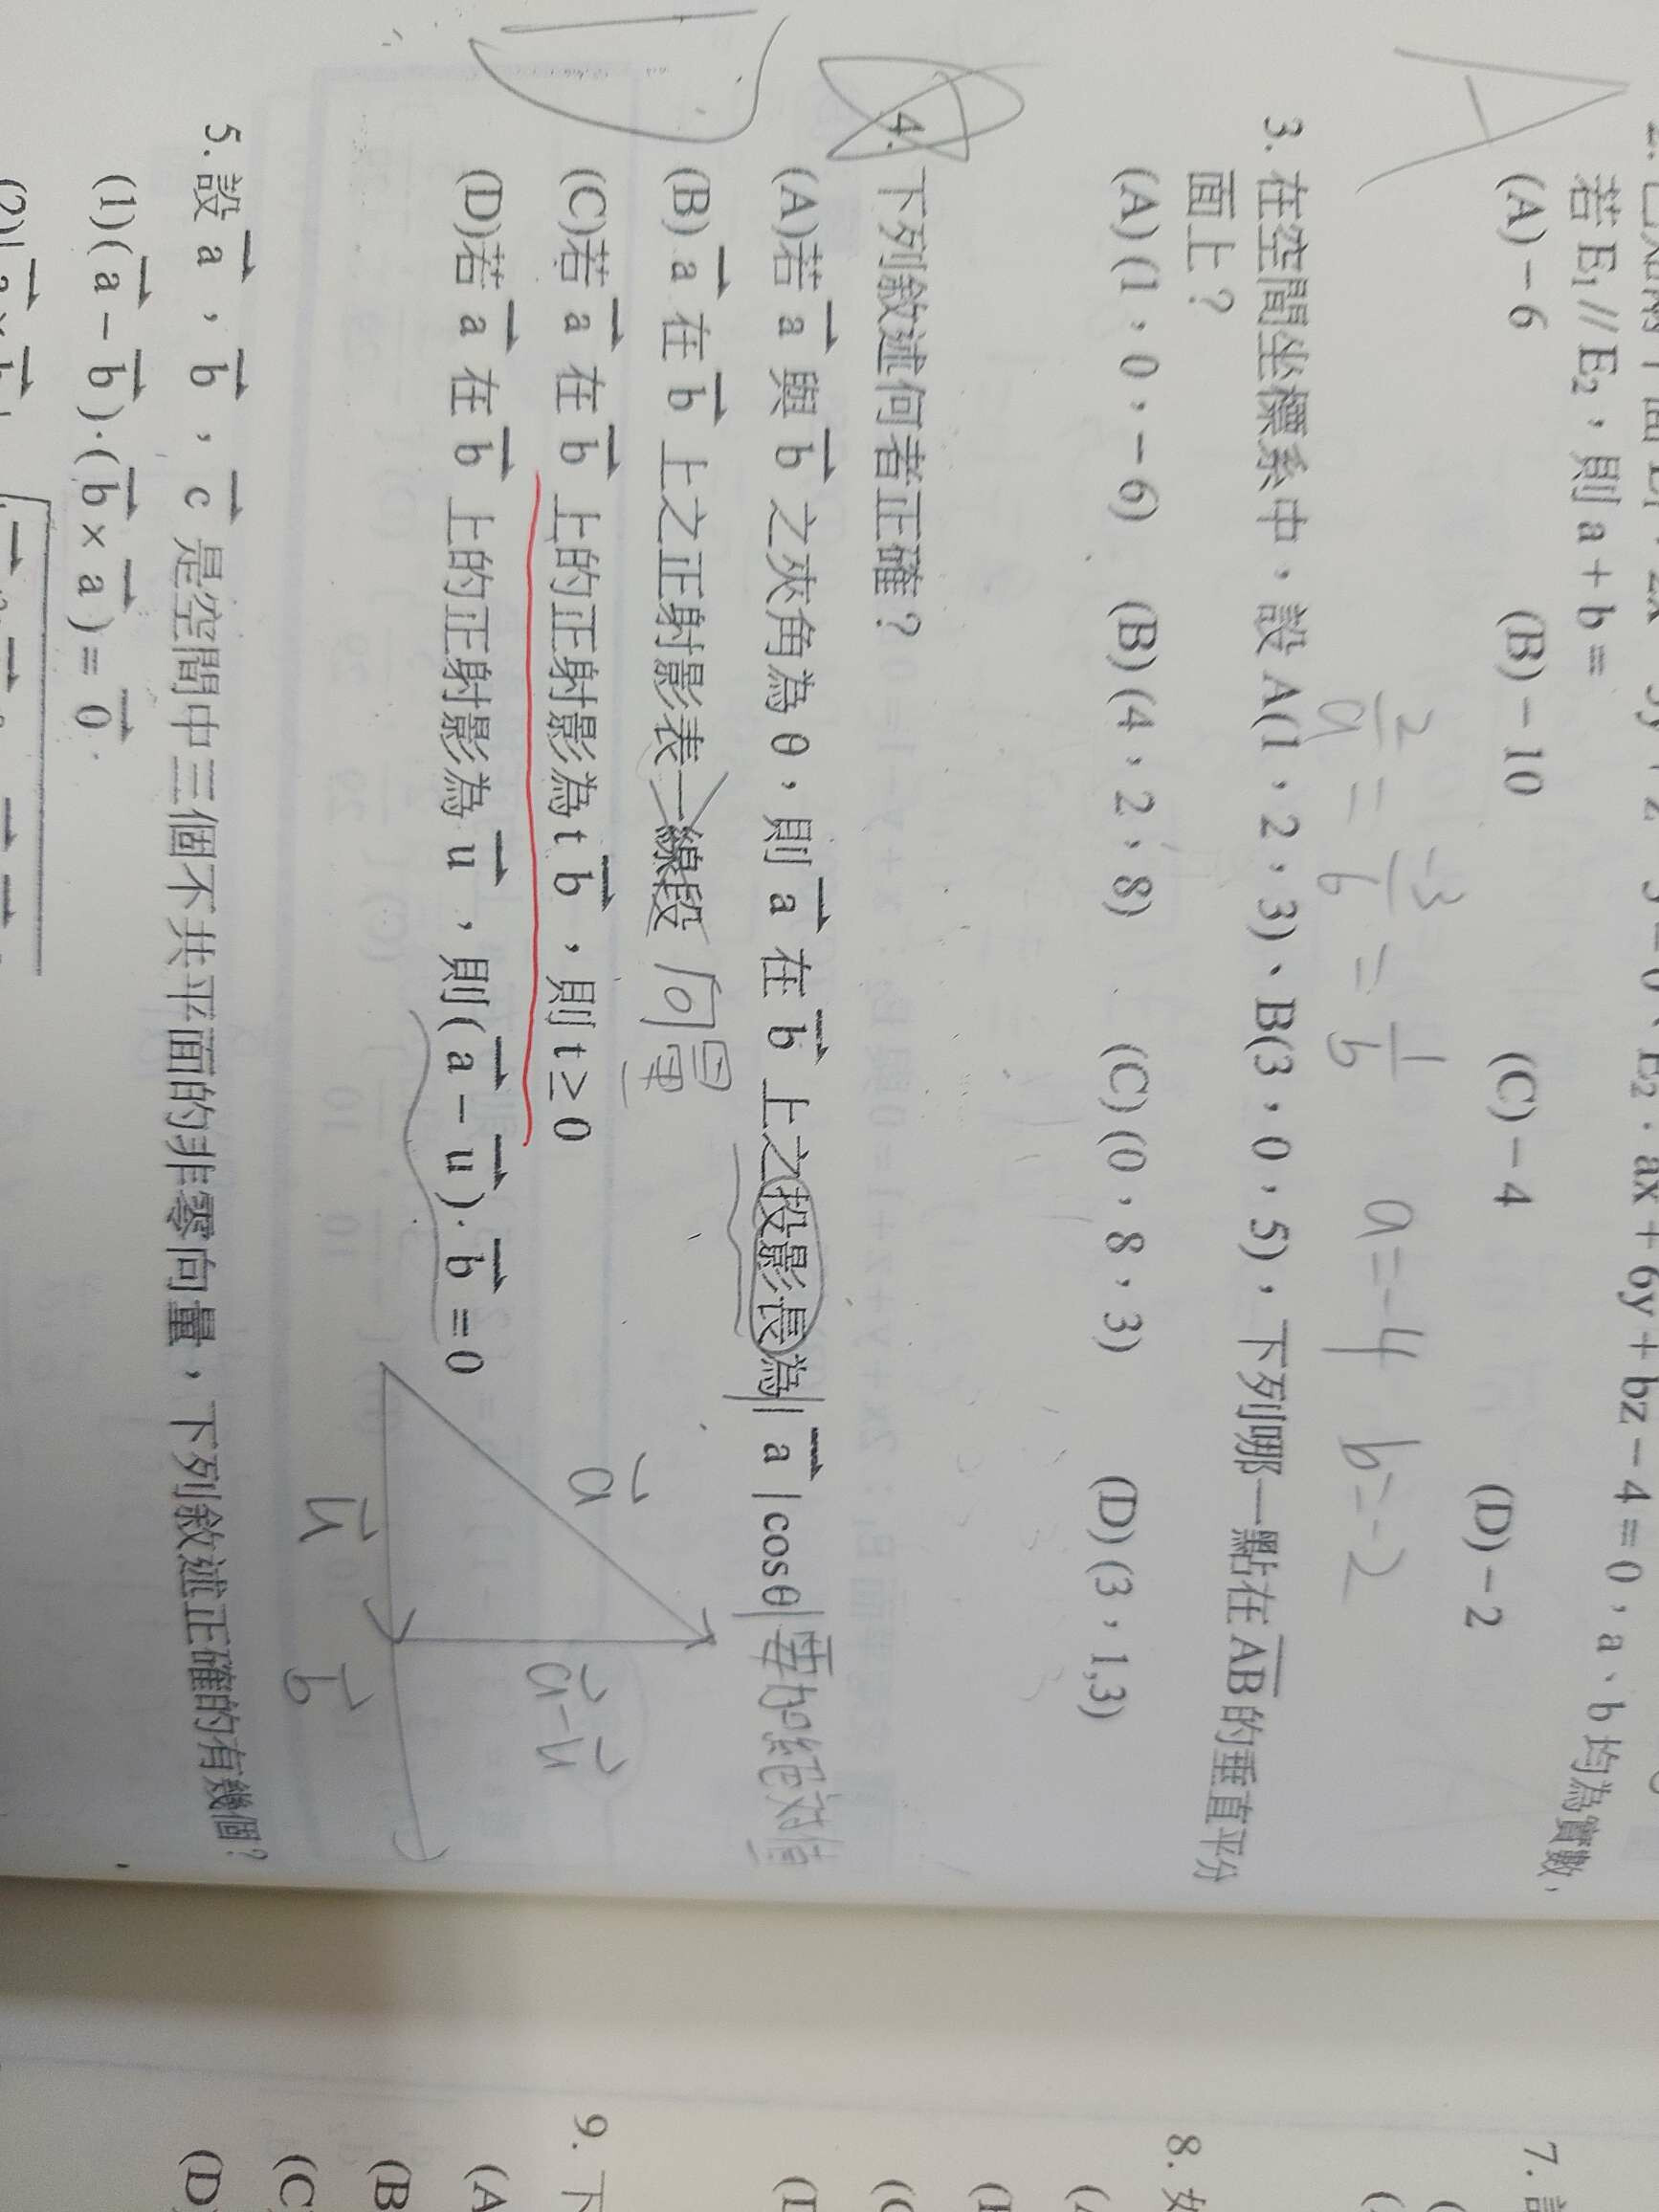 若 E₁ // E₂,則 a + b =
(A) − 6 (B) − 10 (C) − 4 (D) − 2
2/a = -3/6 = 1/b a=-4 b=-2
3. 在空間坐標系中,設 A(1,2,3)、B(3,0,5),下列哪一點在 AB 的垂直平分
面上?
(A) (1,0,− 6) (B) (4,2,8) (C) (0,8,3) (D) (3,1,3)
4. 下列敘述何者正確?
(A)若 a⃗ 與 b⃗ 之夾角為 θ,則 a⃗ 在 b⃗ 上之投影長為 | a⃗ |cosθ 要加絕對值
(B) a⃗ 在 b⃗ 上之正射影表一線段 向量
(C)若 a⃗ 在 b⃗ 上的正射影為 t b⃗,則 t ≥ 0
(D)若 a⃗ 在 b⃗ 上的正射影為 u⃗,則 ( a⃗ − u⃗ )· b⃗ = 0
a⃗
a⃗-u⃗
u⃗ b⃗
5. 設 a⃗,b⃗,c⃗ 是空間中三個不共平面的非零向量,下列敘述正確的有幾個?
(1) ( a⃗ − b⃗ )·( b⃗ × a⃗ ) = 0⃗.
7.
8.
9. 下
(A
(B
(C
(D